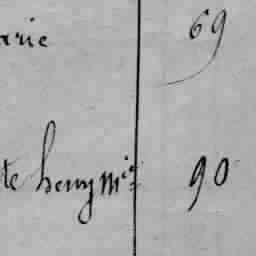 arie 69
te henry m^ie 90